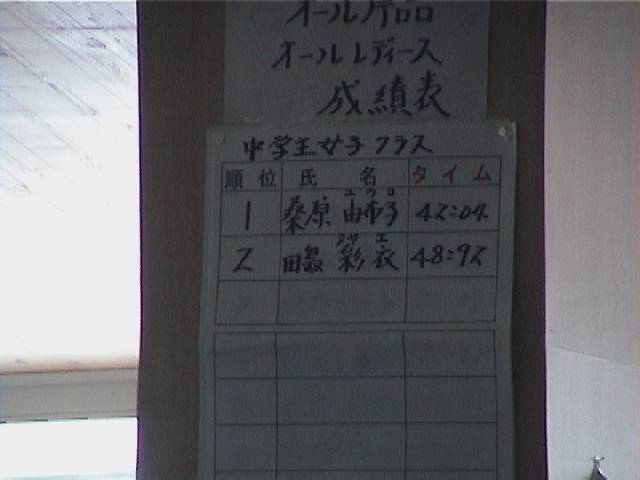 オール片品
オールレディース
成績表
中学生女子クラス
順位 氏名 タイム
ユウコ
1 桑原 由布子 42:04
2 田島 彩衣 48:92